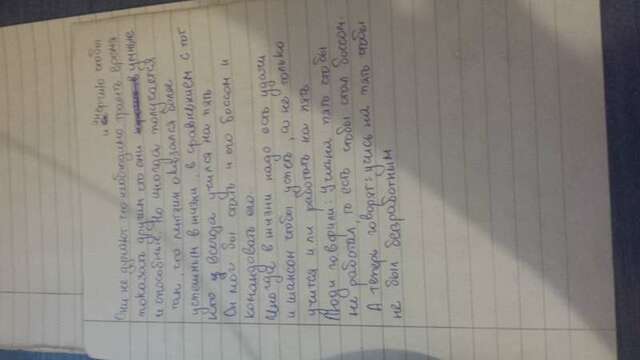 и энергию чтобы
Они не думают что необходимо тратить время
показать другим что они умные
и способные. Но иногда получается
так, что лентяи оказался более
успешным в жизни, в сравнением с тот
кто всегда учился на пять
Он мог бы стать и его боссом и
командовать его.
Иногда в жизни надо есть удачи
и шансом чтобы успеть, а не только
учится и ли работать на пять
Люди говорили: Учи на пять чтобы
не работал, то есть чтобы стал боссом.
А теперь говорят: учись на пять чтобы
не был безработным